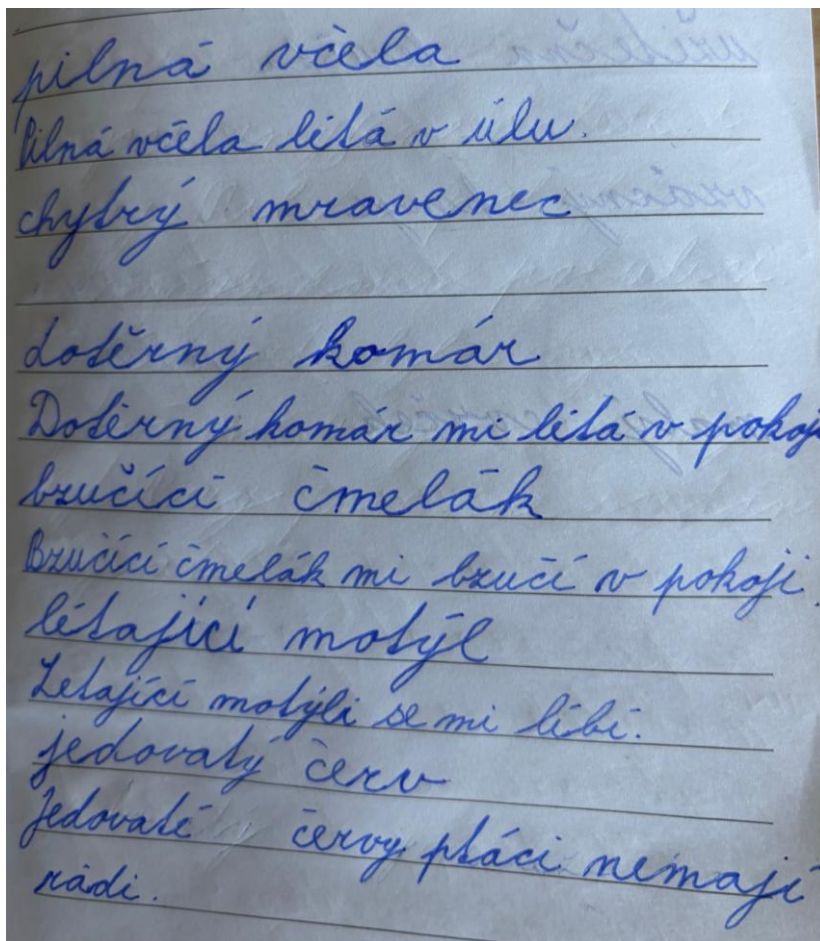 pilná včela
Pilná včela lítá v úlu.
chytrý mravenec
dotěrný komár
Dotěrný komár mi lítá v pokoji
bzučící čmelák
Bzučící čmelák mi bzučí v pokoji.
létající motýl
Letající motýli se mi líbí.
jedovatý červ
Jedovaté červy ptáci nemají
rádi.